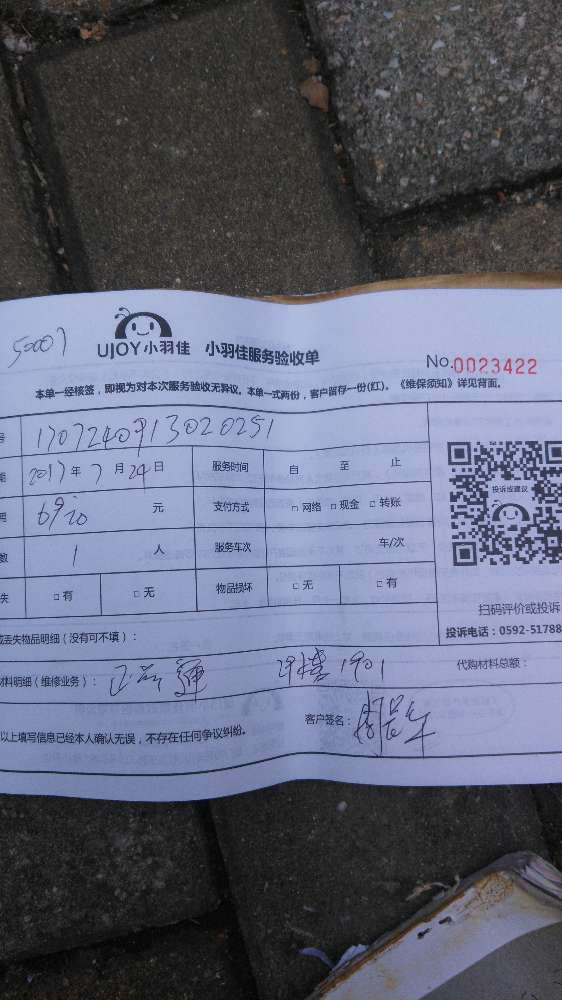 50007
UJOY小羽佳 小羽佳服务验收单
No.0023422
本单一经核签，即视为对本次服务验收无异议。本单一式两份，客户留存一份(红)。《维保须知》详见背面。
号 1707240913020251
期 2017年7月24日 服务时间 自 至 止
元 支付方式 □网络 □现金 □转账
数 1 人 服务车次 车/次
失 □有 □无 物品损坏 □无 □有
投诉或建议
扫码评价或投诉
投诉电话：0592-51788
或丢失物品明细（没有可不填）：
材料明细（维修业务）： 29楼1901 代购材料总额：
以上填写信息已经本人确认无误，不存在任何争议纠纷。 客户签名：